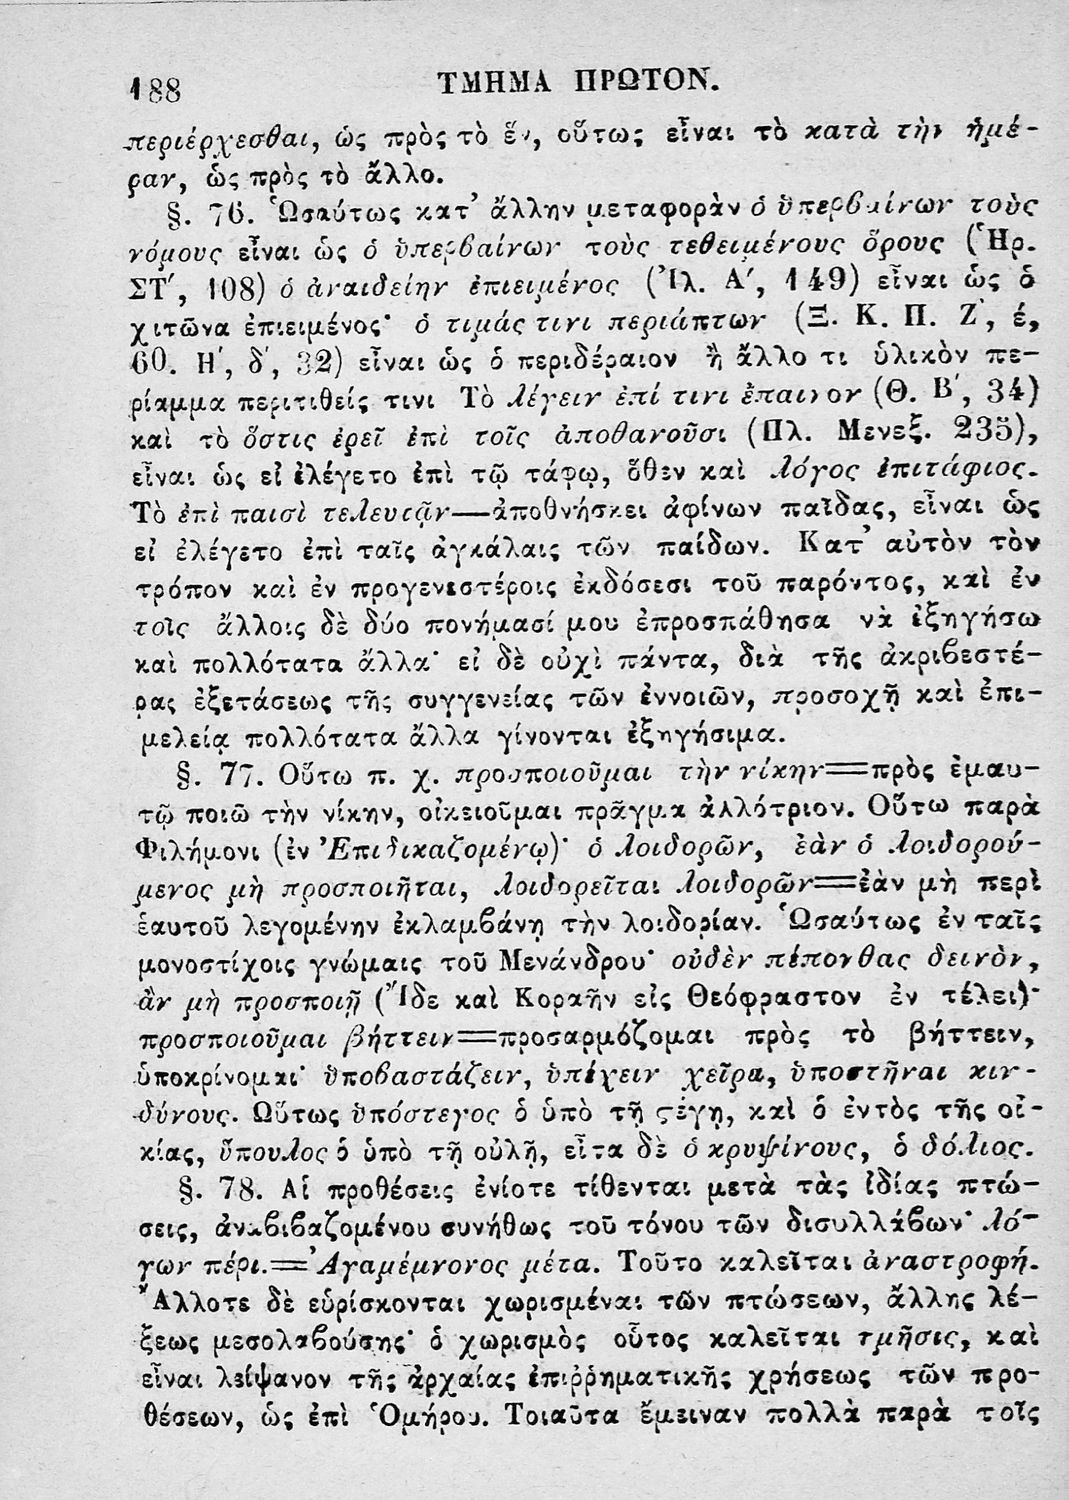 188 ΤΜΗΜΑ ΠΡΩΤΟΝ.
περιέρχεσθαι, ὡς πρὸς τὸ ἕν, οὕτως εἶναι τὸ κατὰ τὴν ἡμέ-
ραν, ὡς πρὸς τὸ ἄλλο.
§. 76. Ὡσαύτως κατ᾽ ἄλλην μεταφορὰν ὁ ὑπερβαίνων τοὺς
νόμους εἶναι ὡς ὁ ὑπερβαίνων τοὺς τεθειμένους ὅρους (Ἡρ.
ΣΤ′, 108) ὁ ἀναιδείην ἐπιειμένος (Ἰλ. Α′, 149) εἶναι ὡς ὁ
χιτῶνα ἐπιειμένος· ὁ τιμάς τινι περιάπτων (Ξ. Κ. Π. Ζ′, έ,
60. Η′, δ′, 32) εἶναι ὡς ὁ περιδέραιον ἢ ἄλλο τι ὑλικὸν πε-
ρίαμμα περιτιθείς τινι Τὸ λέγειν ἐπί τινι ἔπαινον (Θ. Β′, 34)
καὶ τὸ ὅστις ἐρεῖ ἐπὶ τοῖς ἀποθανοῦσι (Πλ. Μενεξ. 235),
εἶναι ὡς εἰ ἐλέγετο ἐπὶ τῷ τάφῳ, ὅθεν καὶ λόγος ἐπιτάφιος.
Τὸ ἐπὶ παισὶ τελευτᾷν—ἀποθνήσκει ἀφίνων παῖδας, εἶναι ὡς
εἰ ἐλέγετο ἐπὶ ταῖς ἀγκάλαις τῶν παίδων. Κατ᾽ αὐτὸν τὸν
τρόπον καὶ ἐν προγενεστέροις ἐκδόσεσι τοῦ παρόντος, καὶ ἐν
τοῖς ἄλλοις δὲ δύο πονήμασί μου ἐπροσπάθησα νὰ ἐξηγήσω
καὶ πολλότατα ἄλλα· εἰ δὲ οὐχὶ πάντα, διὰ τῆς ἀκριβεστέ-
ρας ἐξετάσεως τῆς συγγενείας τῶν ἐννοιῶν, προσοχῇ καὶ ἐπι-
μελείᾳ πολλότατα ἄλλα γίνονται ἐξηγήσιμα.
§. 77. Οὕτω π. χ. προσποιοῦμαι τὴν νίκην=πρὸς ἐμαυ-
τῷ ποιῶ τὴν νίκην, οἰκειοῦμαι πρᾶγμα ἀλλότριον. Οὕτω παρὰ
Φιλήμονι (ἐν Ἐπιδικαζομένῳ)· ὁ λοιδορῶν, ἐὰν ὁ λοιδορού-
μενος μὴ προσποιῆται, λοιδορεῖται λοιδορῶν=ἐὰν μὴ περὶ
ἑαυτοῦ λεγομένην ἐκλαμβάνῃ τὴν λοιδορίαν. Ὡσαύτως ἐν ταῖς
μονοστίχοις γνώμαις τοῦ Μενάνδρου· οὐδὲν πέπονθας δεινὸν,
ἂν μὴ προσποιῇ (Ἴδε καὶ Κοραῆν εἰς Θεόφραστον ἐν τέλει)·
προσποιοῦμαι βήττειν=προσαρμόζομαι πρὸς τὸ βήττειν,
ὑποκρίνομαι· ὑποβαστάζειν, ὑπέχειν χεῖρα, ὑποστῆναι κιν-
δύνους. Οὕτως ὑπόστεγος ὁ ὑπὸ τῇ στέγῃ, καὶ ὁ ἐντὸς τῆς οἰ-
κίας, ὕπουλος ὁ ὑπὸ τῇ οὐλῇ, εἶτα δὲ ὁ κρυψίνους, ὁ δόλιος.
§. 78. Αἱ προθέσεις ἐνίοτε τίθενται μετὰ τὰς ἰδίας πτώ-
σεις, ἀναβιβαζομένου συνήθως τοῦ τόνου τῶν δισυλλάβων· λό-
γων πέρι.=Ἀγαμέμνονος μέτα. Τοῦτο καλεῖται ἀναστροφή.
Ἄλλοτε δὲ εὑρίσκονται χωρισμέναι τῶν πτώσεων, ἄλλης λέ-
ξεως μεσολαβούσης· ὁ χωρισμὸς οὗτος καλεῖται τμῆσις, καὶ
εἶναι λείψανον τῆς ἀρχαίας ἐπιῤῥηματικῆς χρήσεως τῶν προ-
θέσεων, ὡς ἐπὶ Ὁμήρου. Τοιαῦτα ἔμειναν πολλὰ παρὰ τοῖς